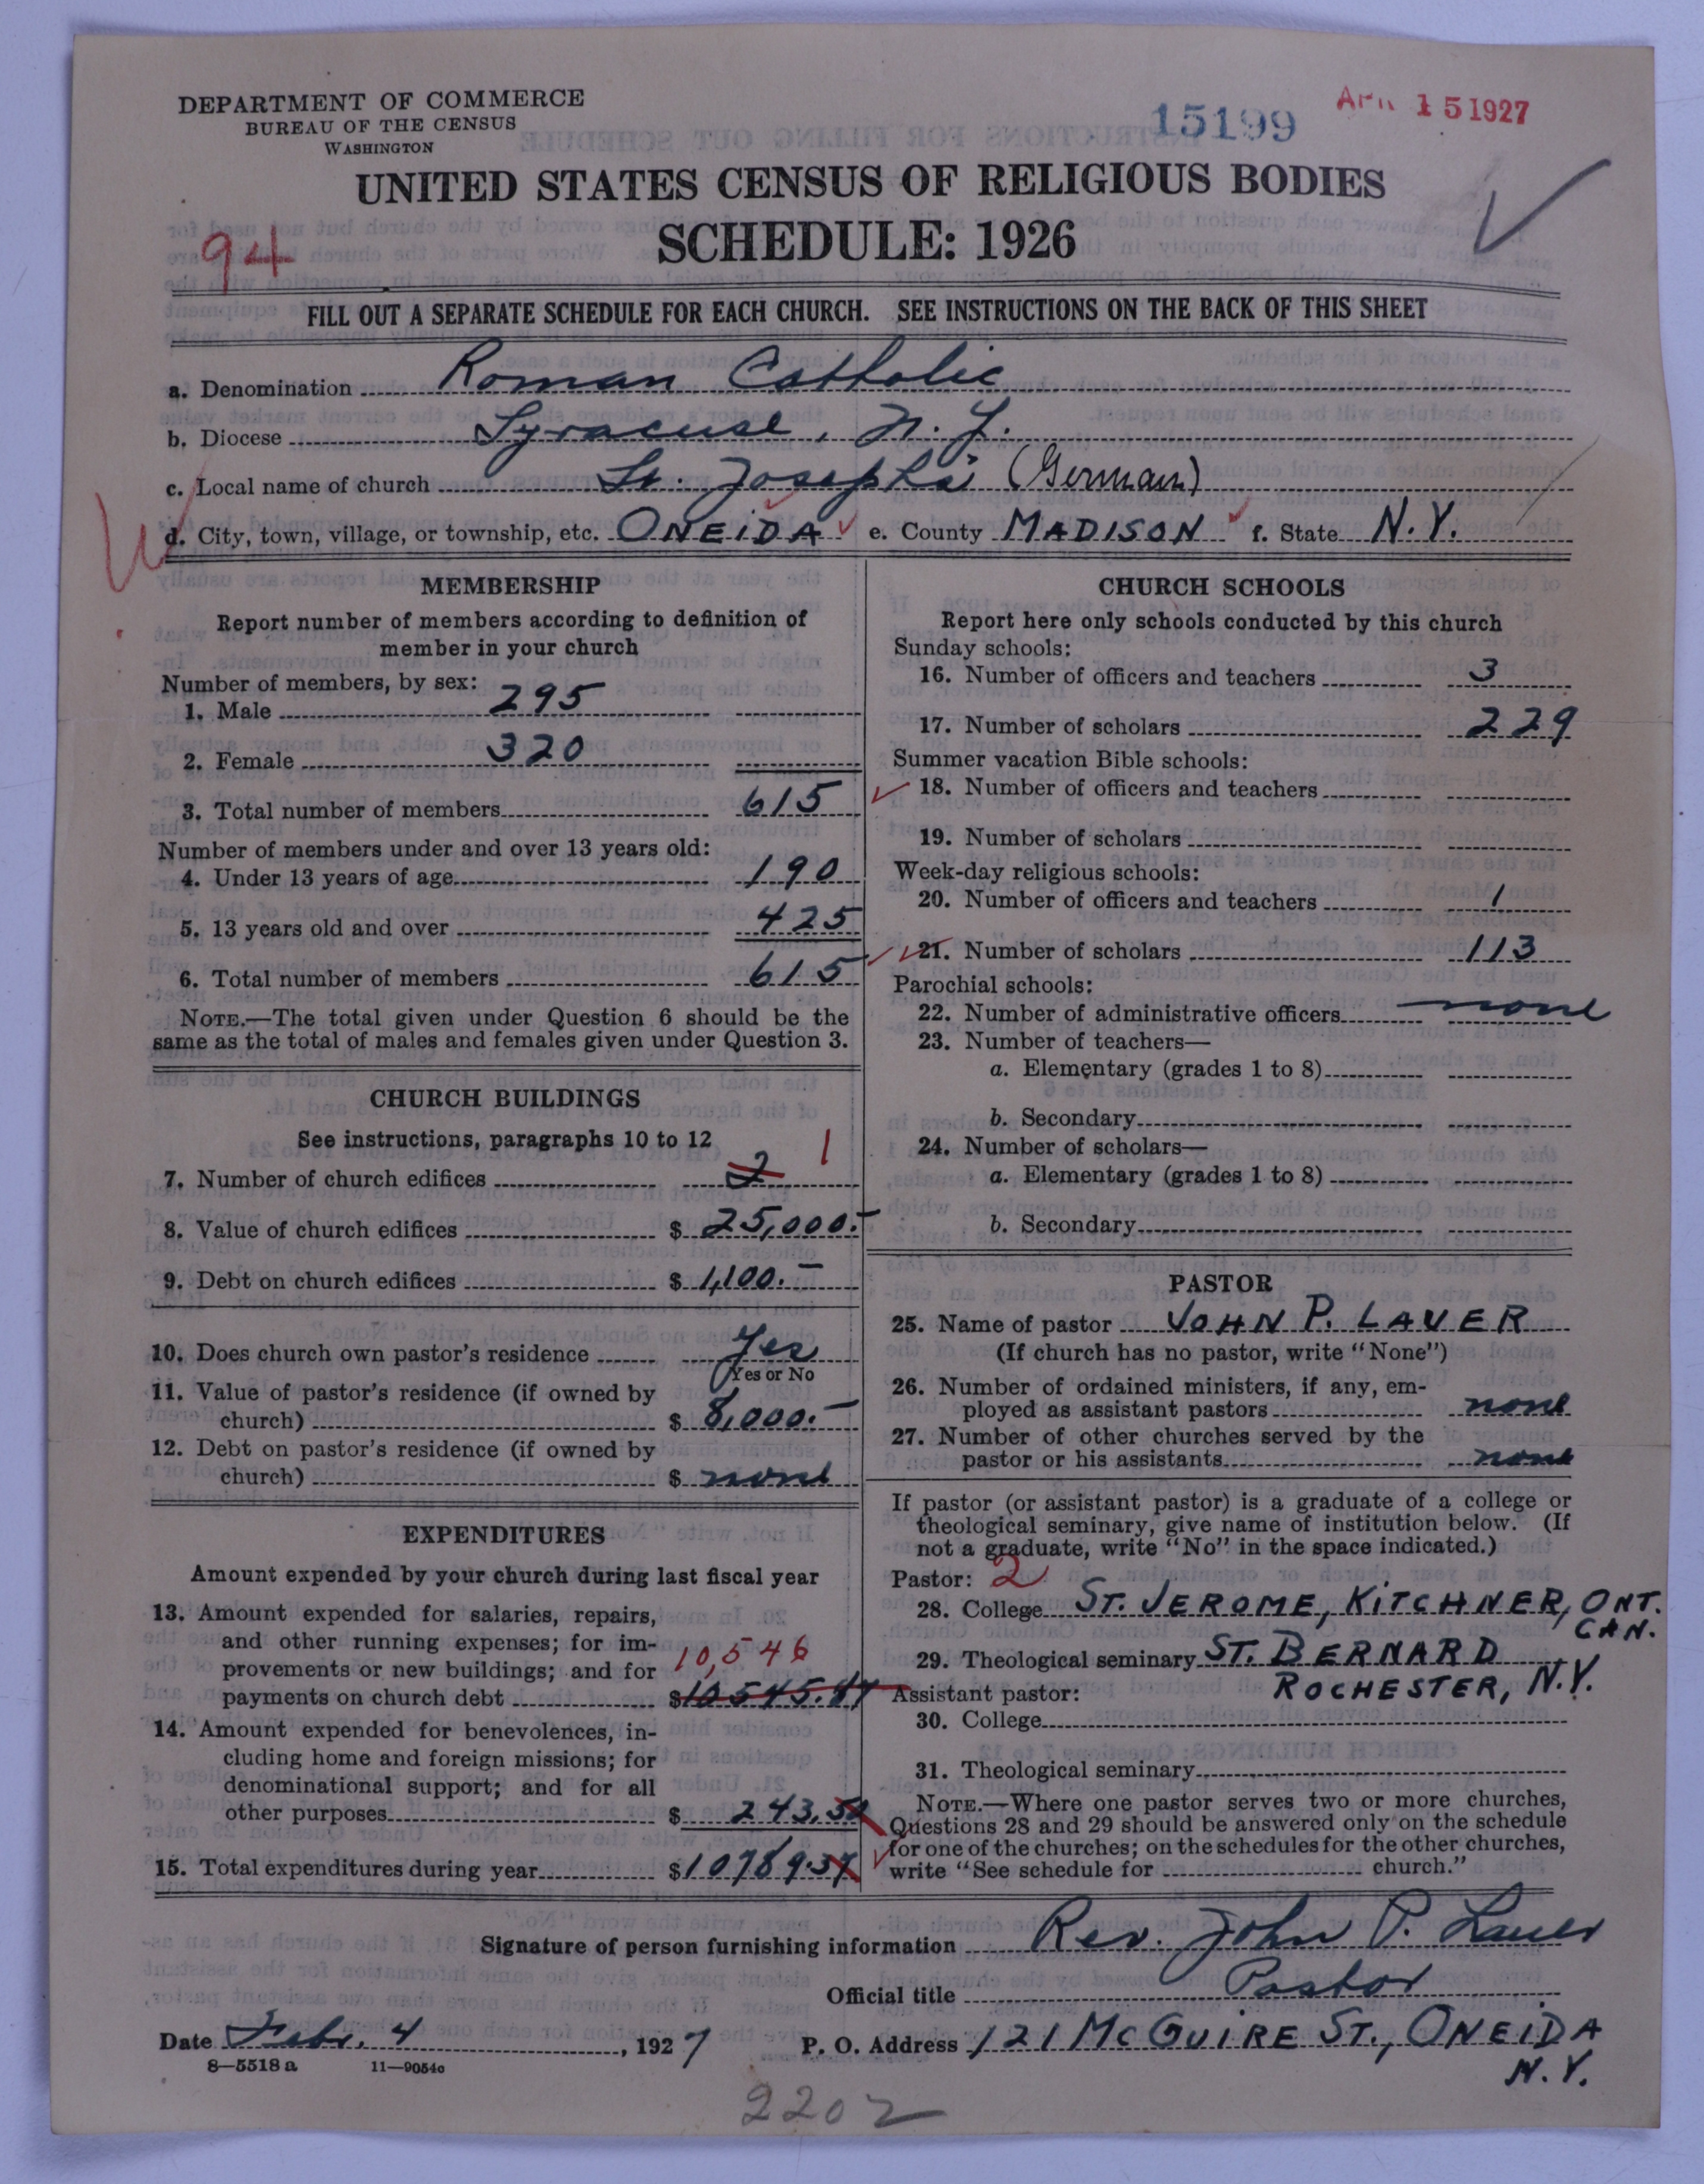 DEPARTMENT OF COMMERCE
BUREAU OF THE CENSUS
WASHINGTON
15199
APR 15 1927
UNITED STATES CENSUS OF RELIGIOUS BODIES
SCHEDULE: 1926
94
FILL OUT A SEPARATE SCHEDULE FOR EACH CHURCH. SEE INSTRUCTIONS ON THE BACK OF THIS SHEET
a. Denomination Roman Catholic
b. Diocese Syracuse, N.Y.
c. Local name of church St. Joseph's (German)
d. City, town, village, or township, etc. ONEIDA e. County MADISON f. State N.Y.
MEMBERSHIP
Report number of members according to definition of
member in your church
Number of members, by sex:
1. Male 295
2. Female 320
3. Total number of members 615
Number of members under and over 13 years old:
4. Under 13 years of age 190
5. 13 years old and over 425
6. Total number of members 615
NOTE.—The total given under Question 6 should be the
same as the total of males and females given under Question 3.
CHURCH BUILDINGS
See instructions, paragraphs 10 to 12
7. Number of church edifices 2 1
8. Value of church edifices $ 25,000.-
9. Debt on church edifices $ 1,100.-
10. Does church own pastor's residence Yes
Yes or No
11. Value of pastor's residence (if owned by
church) $ 8,000.-
12. Debt on pastor's residence (if owned by
church) $ none
EXPENDITURES
Amount expended by your church during last fiscal year
13. Amount expended for salaries, repairs,
and other running expenses; for im-
provements or new buildings; and for 10,546
payments on church debt $10545.87
14. Amount expended for benevolences, in-
cluding home and foreign missions; for
denominational support; and for all
other purposes $ 243.50
15. Total expenditures during year $10789.37
CHURCH SCHOOLS
Report here only schools conducted by this church
Sunday schools:
16. Number of officers and teachers 3
17. Number of scholars 229
Summer vacation Bible schools:
18. Number of officers and teachers
19. Number of scholars
Week-day religious schools:
20. Number of officers and teachers 1
21. Number of scholars 113
Parochial schools:
22. Number of administrative officers none
23. Number of teachers—
a. Elementary (grades 1 to 8)
b. Secondary
24. Number of scholars—
a. Elementary (grades 1 to 8)
b. Secondary
PASTOR
25. Name of pastor JOHN P. LAUER
(If church has no pastor, write "None")
26. Number of ordained ministers, if any, em-
ployed as assistant pastors none
27. Number of other churches served by the
pastor or his assistants none
If pastor (or assistant pastor) is a graduate of a college or
theological seminary, give name of institution below. (If
not a graduate, write "No" in the space indicated.)
Pastor: 2
28. College ST. JEROME, KITCHNER, ONT.
CAN.
29. Theological seminary ST. BERNARD
Assistant pastor: ROCHESTER, N.Y.
30. College
31. Theological seminary
NOTE.—Where one pastor serves two or more churches,
Questions 28 and 29 should be answered only on the schedule
for one of the churches; on the schedules for the other churches,
write "See schedule for church."
Signature of person furnishing information Rev. John P. Lauer
Official title Pastor
Date Febr. 4, 1927 P. O. Address 121 MCGUIRE ST., ONEIDA
N.Y.
8—5518 a 11—9054c
2202